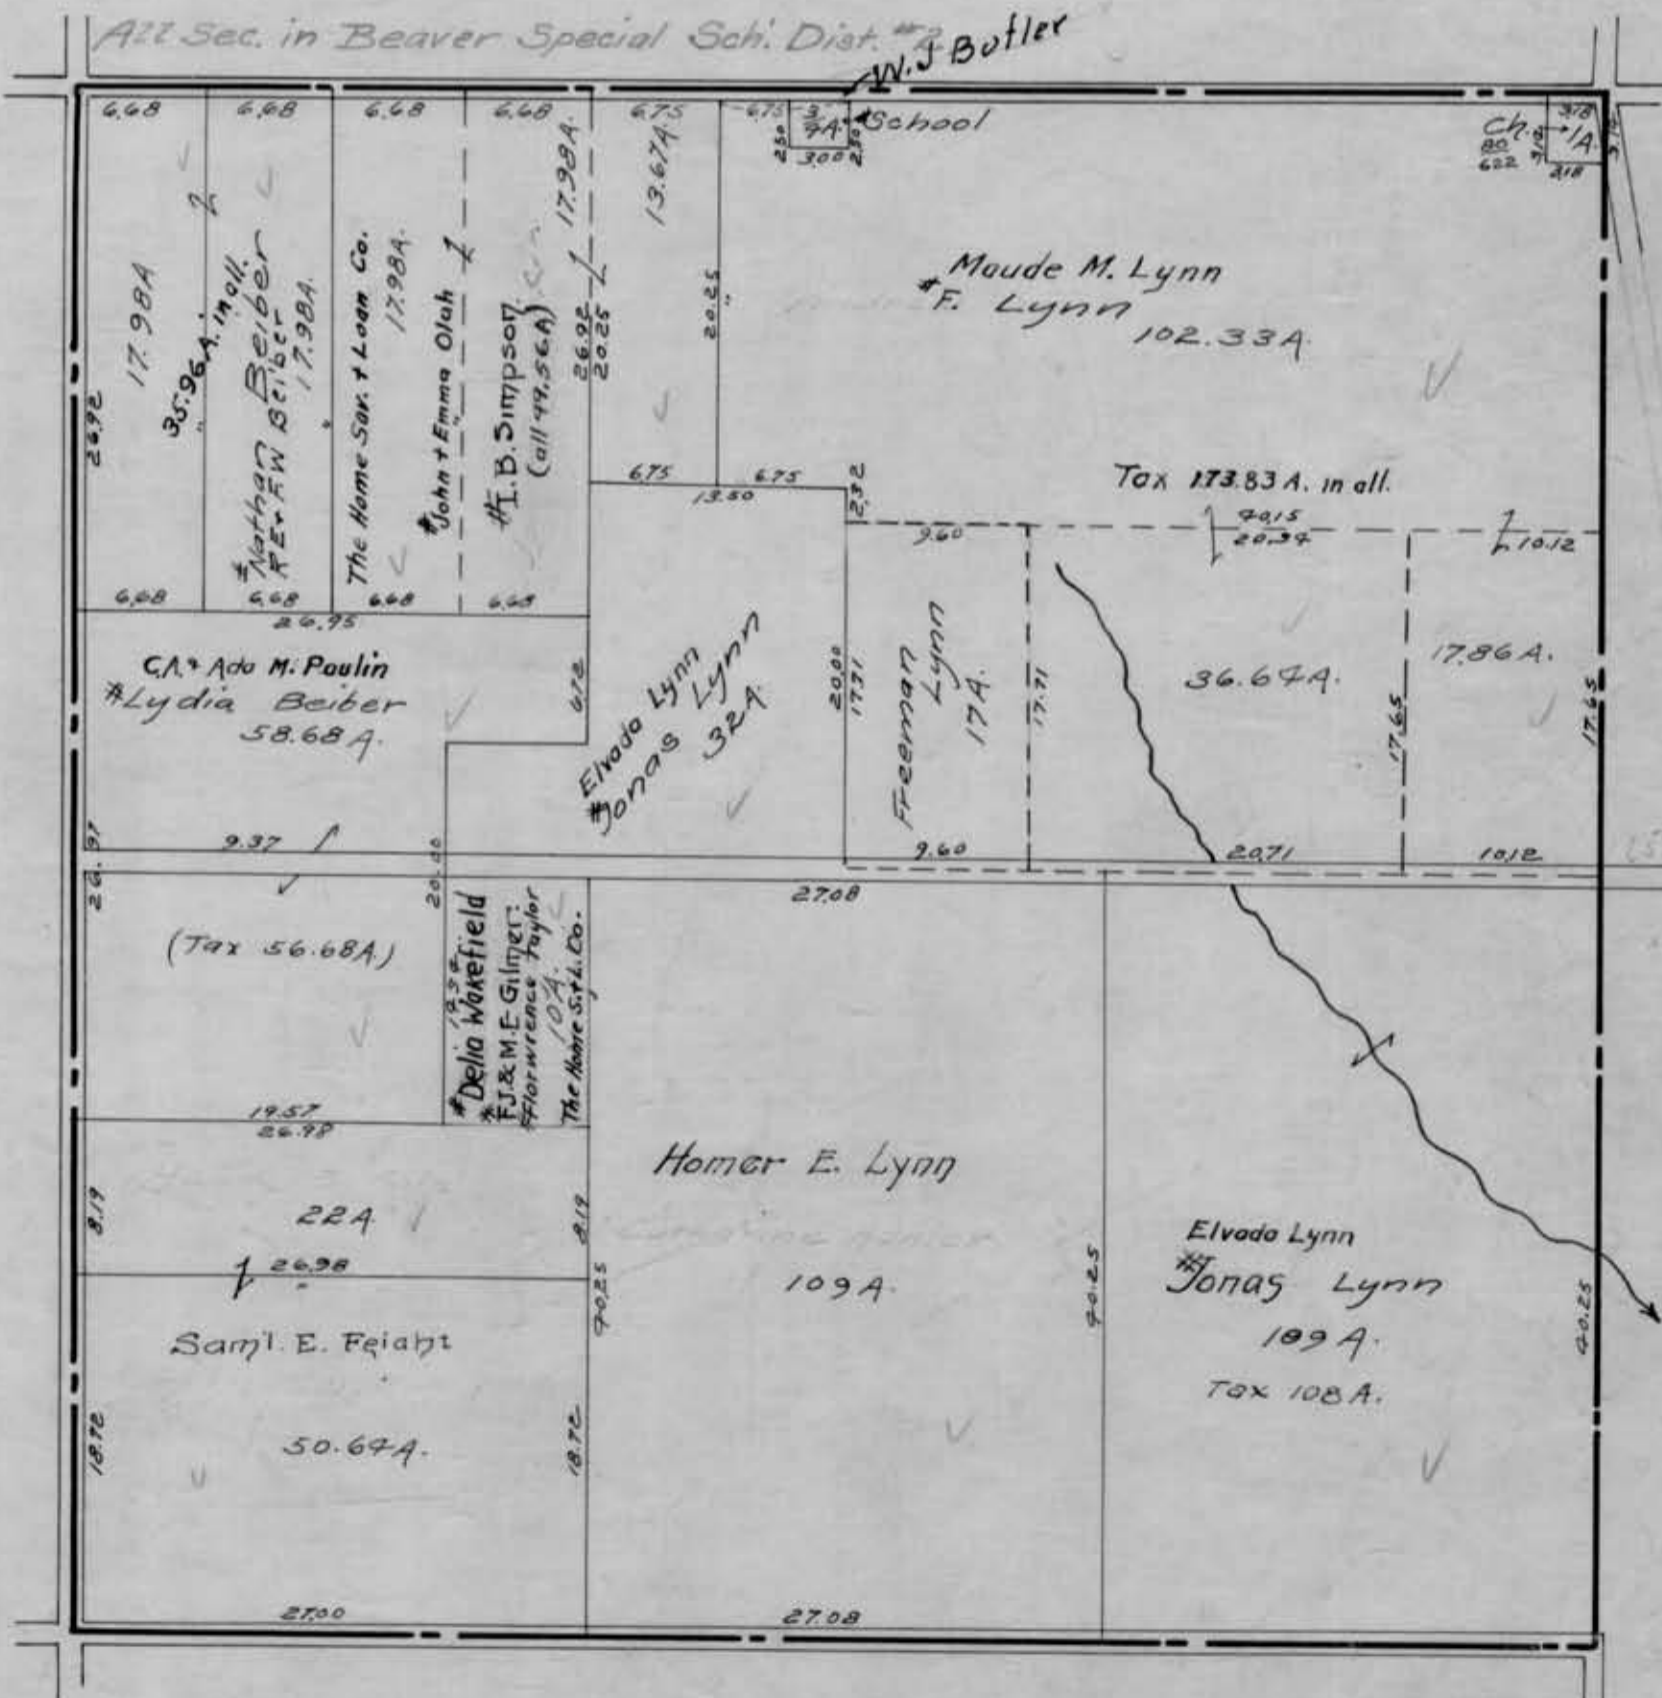 All Sec. in Beaver Special Sch. Dist. #2
W. J Butler
6.68
6.68
6.68
6.68
6.75
6.75
3/4A.
#School
2.50
3.00
2.50
Ch.
80
622
3.18
3.18
1A.
3.18
3.18
17.98A
35.96 A. in all.
#Nathan Beiber
RE + FW Beiber
17.98A.
The Home Sav. + Loan Co.
17.98A.
#John + Emma Olah
#I. B. Simpson
(all 49.56A)
17.98A.
26.92
20.25
13.67A.
20.25
26.92
Maude M. Lynn
#F. Lynn
102.33A.
Tax 173.83 A. in all.
6.75
6.75
13.50
2.32
9.60
40.15
20.34
10.12
6.68
6.68
6.68
6.68
26.95
C.A. & Ada M. Paulin
#Lydia Beiber
58.68 A.
6.72
Elvada Lynn
#Jonas Lynn
32A.
20.00
17.71
Freeman Lynn
17A.
17.71
36.64A.
17.65
17.86 A.
17.65
9.37
9.60
20.71
10.12
26.97
20.00
27.08
(Tax 56.68A.)
#Delia Wakefield
#F.J. & M.E. Gilmer
#Florwrence Taylor
10A.
The Home S. + L. Co.
19.57
26.98
8.19
22A.
8.19
26.98
Homer E. Lynn
109A.
40.25
40.25
Elvada Lynn
#Jonas Lynn
109 A.
Tax 108 A.
40.25
Saml. E. Feight
50.64A.
18.72
18.72
27.00
27.08